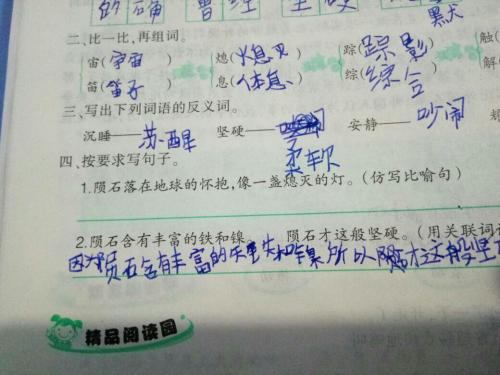 的 确 曾 经 坚 硬
黑犬
二、比一比,再组词。
宙(宇宙) 熄(火息灭) 踪(踪影) 触(
笛(笛子) 息(休息) 综(综合) 解(
三、写出下列词语的反义词。
沉睡——苏醒 坚硬——柔软 安静——吵闹
四、按要求写句子。
1.陨石落在地球的怀抱,像一盏熄灭的灯。(仿写比喻句)
2.陨石含有丰富的铁和镍。 陨石才这般坚硬。(用关联词
因为陨石含有丰富的铁和镍所以陨石才这般坚
精品阅读园